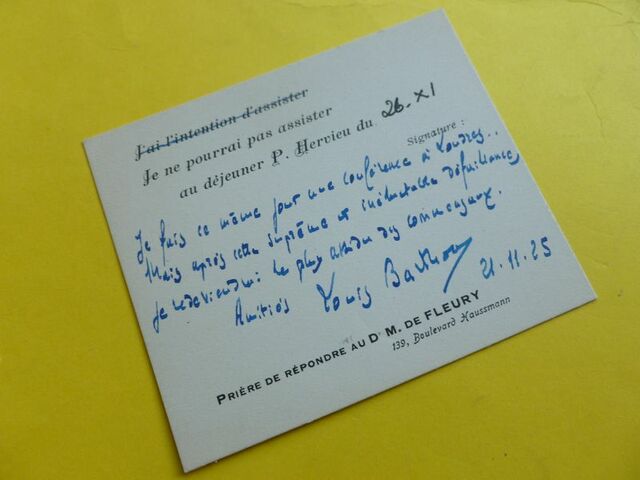 J'ai l'intention d'assister
Je ne pourrai pas assister
au déjeuner P. Hervieu du 26.XI
Signature :
Je fais ce même jour une conférence à Londres..
Mais après cette suprême et inéluctable défaillance,
je redeviendrai le plus assidu des commensaux.
Amitiés Louis Barthou
21.11.25
PRIÈRE DE RÉPONDRE AU Dr M. DE FLEURY
139, Boulevard Haussmann